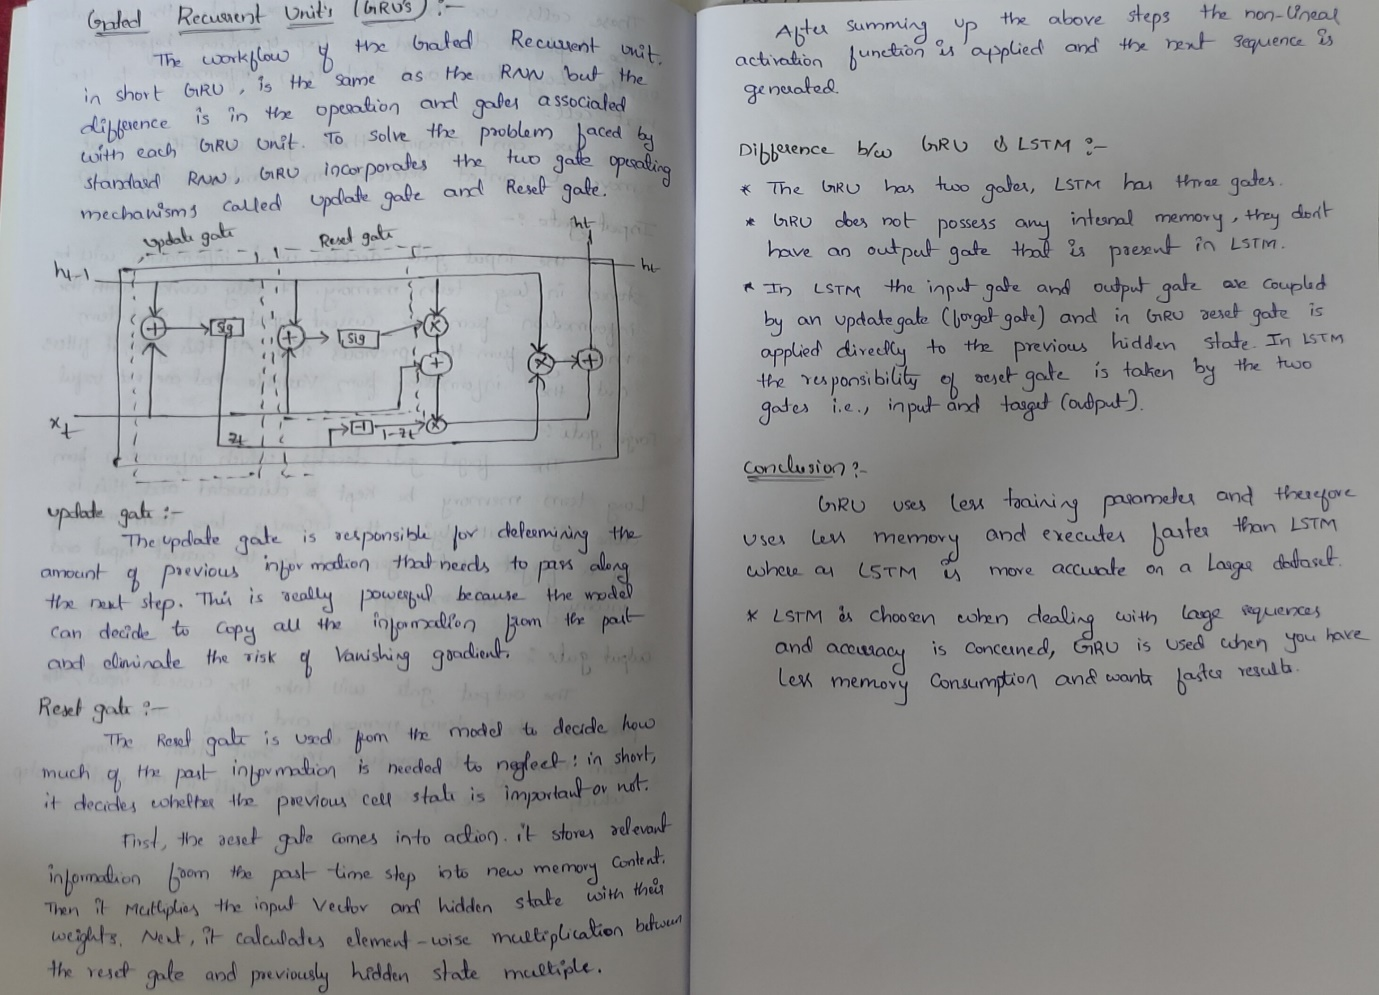 Gated Recurrent Unit's (GRU's) :-
The workflow of the Gated Recurrent Unit.
in short GRU, is the same as the RNN but the
difference is in the operation and gates associated
with each GRU Unit. To solve the problem faced by
standard RNN, GRU incorporates the two gate operating
mechanisms called update gate and Reset gate.
update gate
Reset gate
ht
ht-1
ht
+
sig
+
sig
x
+
x
+
xt
zt
-1
1-zt
x
update gate :-
The update gate is responsible for determining the
amount of previous information that needs to pass along
the next step. This is really powerful because the model
can decide to copy all the information from the past
and eliminate the risk of Vanishing gradient.
Reset gate :-
The Reset gate is used from the model to decide how
much of the past information is needed to neglect; in short,
it decides whether the previous cell state is important or not.
First, the reset gate comes into action. it stores relevant
information from the past time step into new memory content.
Then it Multiplies the input vector and hidden state with their
weights. Next, it calculates element-wise multiplication between
the reset gate and previously hidden state multiple.
After summing up the above steps the non-lineal
activation function is applied and the next sequence is
generated.
Difference b/w GRU & LSTM :-
* The GRU has two gates, LSTM has three gates.
* GRU does not possess any internal memory, they don't
have an output gate that is present in LSTM.
* In LSTM the input gate and output gate are coupled
by an update gate (forget gate) and in GRU reset gate is
applied directly to the previous hidden state. In LSTM
the responsibility of reset gate is taken by the two
gates i.e., input and target (output).
Conclusion :-
GRU uses less training parameter and therefore
uses less memory and executes faster than LSTM
where as LSTM is more accurate on a Large dataset.
* LSTM is choosen when dealing with large sequences
and accuracy is concerned, GRU is used when you have
less memory consumption and wants faster results.